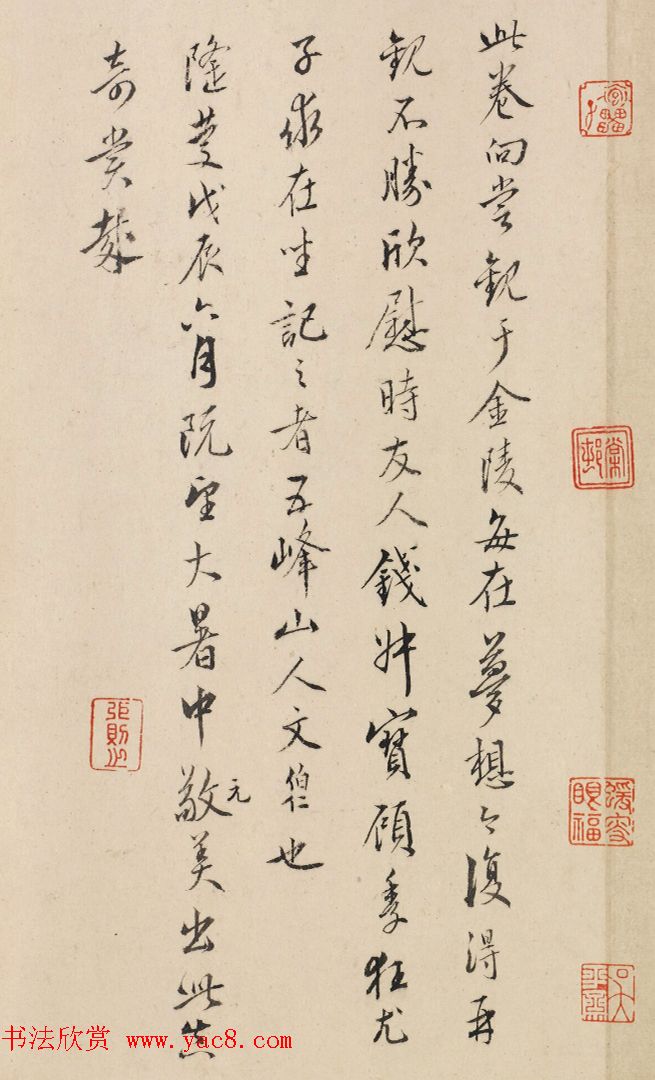 此卷向嘗觀于金陵每在夢想今復得再
觀不勝欣慰時友人錢叔寶顧季狂尤
子求在坐記之者五峰山人文伯仁也
隆慶戊辰六月既望大暑中敬美出此真
元
奇賞哉
棠邨
張則之
书法欣赏 www.yac8.com